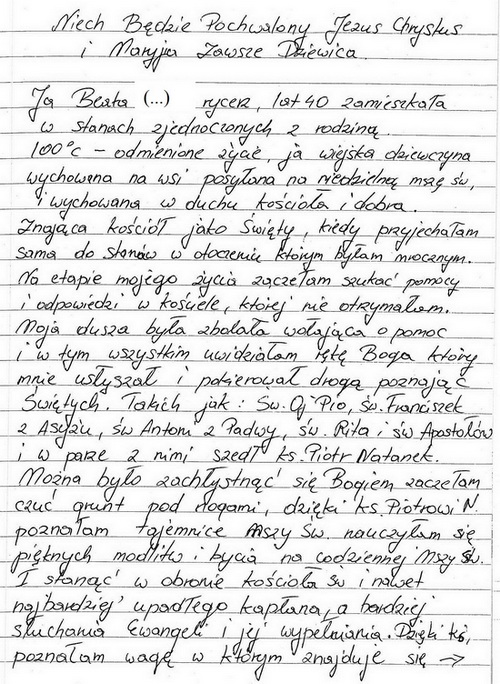 Niech Będzie Pochwalony Jezus Chrystus
i Maryja Zawsze Dziewica.
Ja Beata (...) rycerz, lat 40 zamieszkała
w stanach zjednoczonych z rodziną.
100°c – odmienione życie, ja wiejska dziewczyna
wychowana na wsi posyłana na niedzielną mszę św,
i wychowana w duchu kościoła i dobra.
Znająca kościół jako Święty, kiedy przyjechałam
sama do stanów w otoczeniu którym byłam mrocznym.
Na etapie mojego życia zaczełam szukać pomocy
i odpowiedzi w kościele, której nie otrzymałam.
Moja dusza była zbolała wołająca o pomoc
i w tym wszystkim uwidziałam rękę Boga który
mnie usłyszał i pokierował drogą poznając
Świętych. Takich jak: Św. Oj Pio, św. Franciszek
z Asyżu, św Antoni z Padwy, św. Rita i św Apostołów
i w parze z nimi szedł ks. Piotr Natanek.
Można było zachłystnąć się Bogiem zaczełam
czuć grunt pod nogami, dzięki ks. Piotrowi N.
poznałam tajemnice Mszy Św. nauczyłam się
pięknych modlitw i bycia na codziennej Mszy Św.
I stanąć w obronie kościoła św i nawet
najbardziej upadłego kapłana, a bardziej
słuchania Ewangeli i jej wypełniania. Dzięki ks,
poznałam wagę w którym znajduje się →